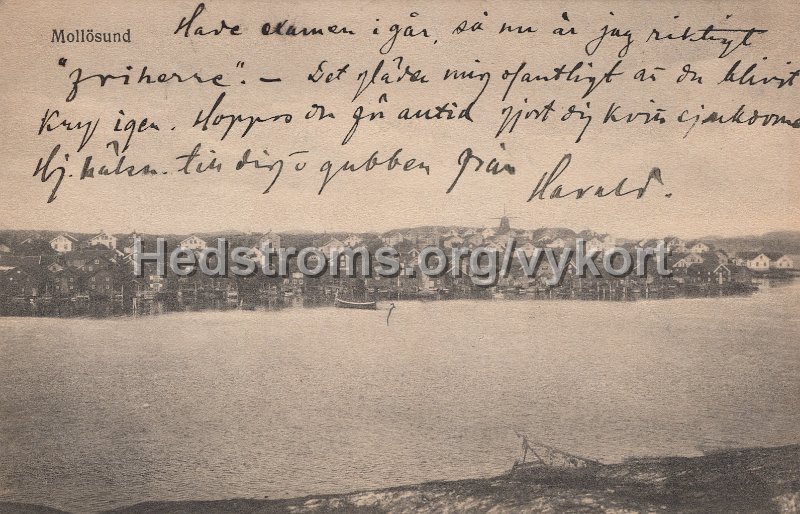 Mollösund
Hade examen i går, så nu är jag riktigt
"friherre". – Det gläder mig ofantligt att du blivit
kry igen. Hoppas du för antid gjort dig kvitt
Hj. häls. till dig o gubben från
Harald.
Hedstroms.org/vykort